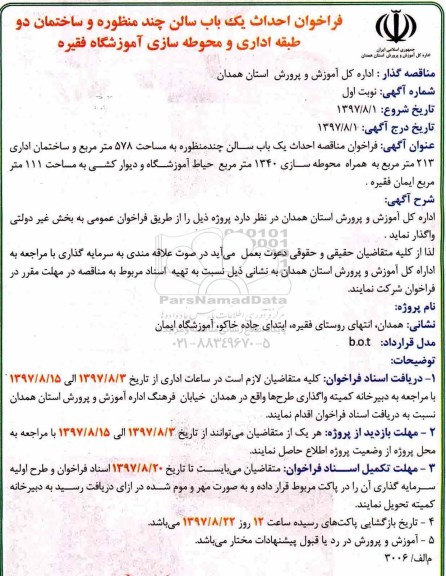 فراخوان احداث یک باب سالن چند منظوره و ساختمان دو
طبقه اداری و محوطه سازی آموزشگاه فقیره
جمهوری اسلامی ایران
اداره کل آموزش و پرورش استان همدان
مناقصه گذار : اداره کل آموزش و پرورش استان همدان
شماره آگهی: نوبت اول
تاریخ شروع: ۱۳۹۷/۸/۱
تاریخ درج آگهی: ۱۳۹۷/۸/۱
عنوان آگهی: فراخوان مناقصه احداث یک باب سالن چندمنظوره به مساحت ۵۷۸ متر مربع و ساختمان اداری
۲۱۳ متر مربع به همراه محوطه سازی ۱۳۴۰ متر مربع حیاط آموزشگاه و دیوار کشی به مساحت ۱۱۱ متر
مربع ایمان فقیره .
شرح آگهی:
اداره کل آموزش و پرورش استان همدان در نظر دارد پروژه ذیل را از طریق فراخوان عمومی به بخش غیر دولتی
واگذار نماید .
لذا از کلیه متقاضیان حقیقی و حقوقی دعوت بعمل می‌آید در صوت علاقه مندی به سرمایه گذاری با مراجعه به
اداراه کل آموزش و پرورش استان همدان به نشانی ذیل نسبت به تهیه اسناد مربوط به مناقصه در مهلت مقرر در
فراخوان شرکت نمایند.
ParsNamadData
نام پروژه:
نشانی: همدان، انتهای روستای فقیره، ابتدای جاده خاکو، آموزشگاه ایمان
۰۲۱-۸۸۳۴۹۶۷۰-۵
مدل قرارداد: b.o.t
توضیحات:
۱- دریافت اسناد فراخوان: کلیه متقاضیان لازم است در ساعات اداری از تاریخ ۱۳۹۷/۸/۳ الی ۱۳۹۷/۸/۱۵
با مراجعه به دبیرخانه کمیته واگذاری طرح‌ها واقع در همدان خیابان فرهنگ اداره آموزش و پرورش استان همدان
نسبت به دریافت اسناد فراخوان اقدام نمایند.
۲ - مهلت بازدید از پروژه: هر یک از متقاضیان می‌توانند از تاریخ ۱۳۹۷/۸/۳ الی ۱۳۹۷/۸/۱۵ با مراجعه به
محل پروژه از وضعیت پروژه اطلاع حاصل نمایند.
۳ - مهلت تکمیل اسناد فراخوان: متقاضیان می‌بایست تا تاریخ ۱۳۹۷/۸/۲۰ اسناد فراخوان و طرح اولیه
سرمایه گذاری آن را در پاکت مربوط قرار داده و به صورت مهر و موم شده در ازای دریافت رسید به دبیرخانه
کمیته تحویل نمایند.
۴ - تاریخ بازگشایی پاکت‌های رسیده ساعت ۱۲ روز ۱۳۹۷/۸/۲۲ می‌باشد.
۵ - آموزش و پرورش در رد یا قبول پیشنهادات مختار می‌باشد.
م‌الف/ ۳۰۰۶